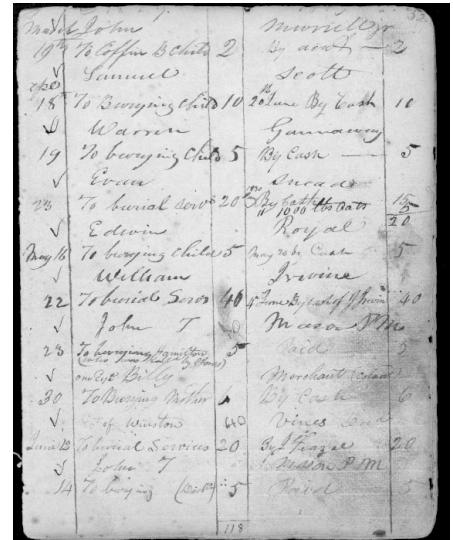 March John Murrell Jr
19th To Coffin B Child 2 By acct — 2
Samuel Scott
Apl
18 To Burying Child 10 20th June By Cash 10
Warren Gannaway
19 To burying Child 5 By Cash — 5
Evan Snead
23 To burial serv 20 By Cash 15
1000 lbs Oats 5
20
Edwin Royal
May 16 To burying Child 5 May 20 By Cash 5
William Irvine
22 To burial Servs 40 June By Cash of J Irvine 40
John T Mason P M
23 To burying Hamilton 5 Paid 5
one Eye Billy Merchant
30 To Burying Mother 6 By Cash 6
of Winston Vines
June 12 To burial Services 20 By 20
John T Mason P M
14 To burying 5 Paid 5
118